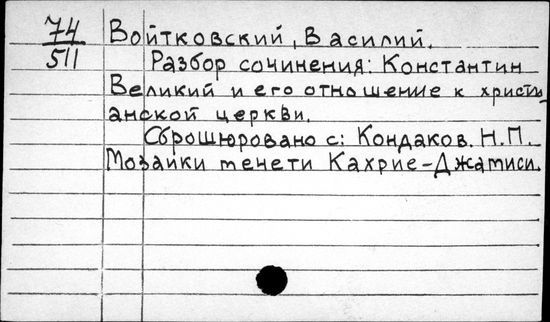 74
511
Войтковский, Василий.
Разбор сочинения: Константин
Великий и его отношение к христи-
анской церкви.
Сброшюровано с: Кондаков. Н.П.
Мозаики тенети Кахрие-Джатиси.